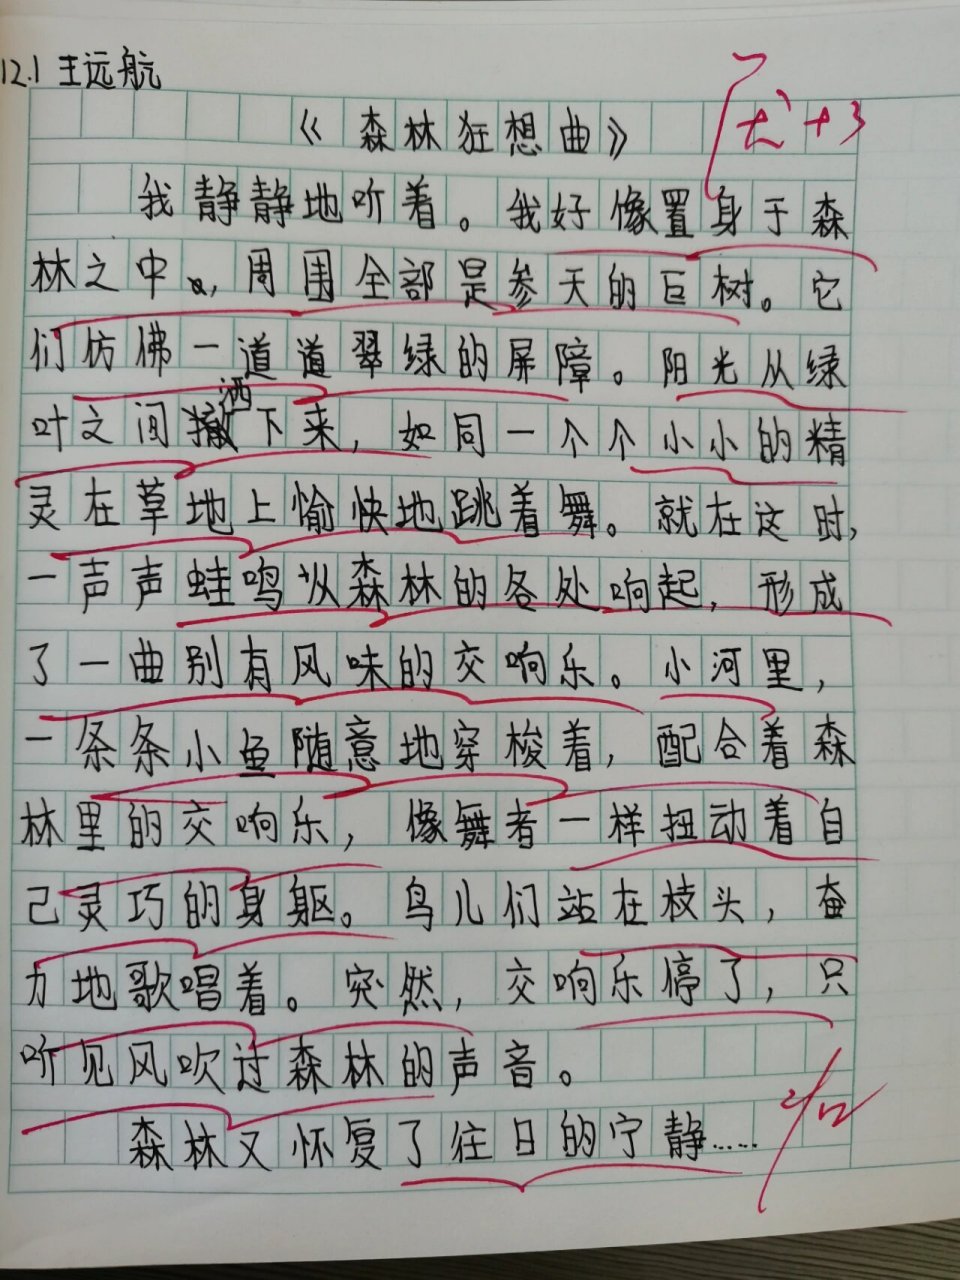 12.1 王远航
《森林狂想曲》
优+3
我静静地听着。我好像置身于森
林之中,周围全部是参天的巨树。它
们仿佛一道道翠绿的屏障。阳光从绿
叶之间洒下来,如同一个个小小的精
灵在草地上愉快地跳着舞。就在这时,
一声声蛙鸣从森林的各处响起,形成
了一曲别有风味的交响乐。小河里,
一条条小鱼随意地穿梭着,配合着森
林里的交响乐,像舞者一样扭动着自
己灵巧的身躯。鸟儿们站在枝头,奋
力地歌唱着。突然,交响乐停了,只
听见风吹过森林的声音。
森林又怀复了往日的宁静……
2/12